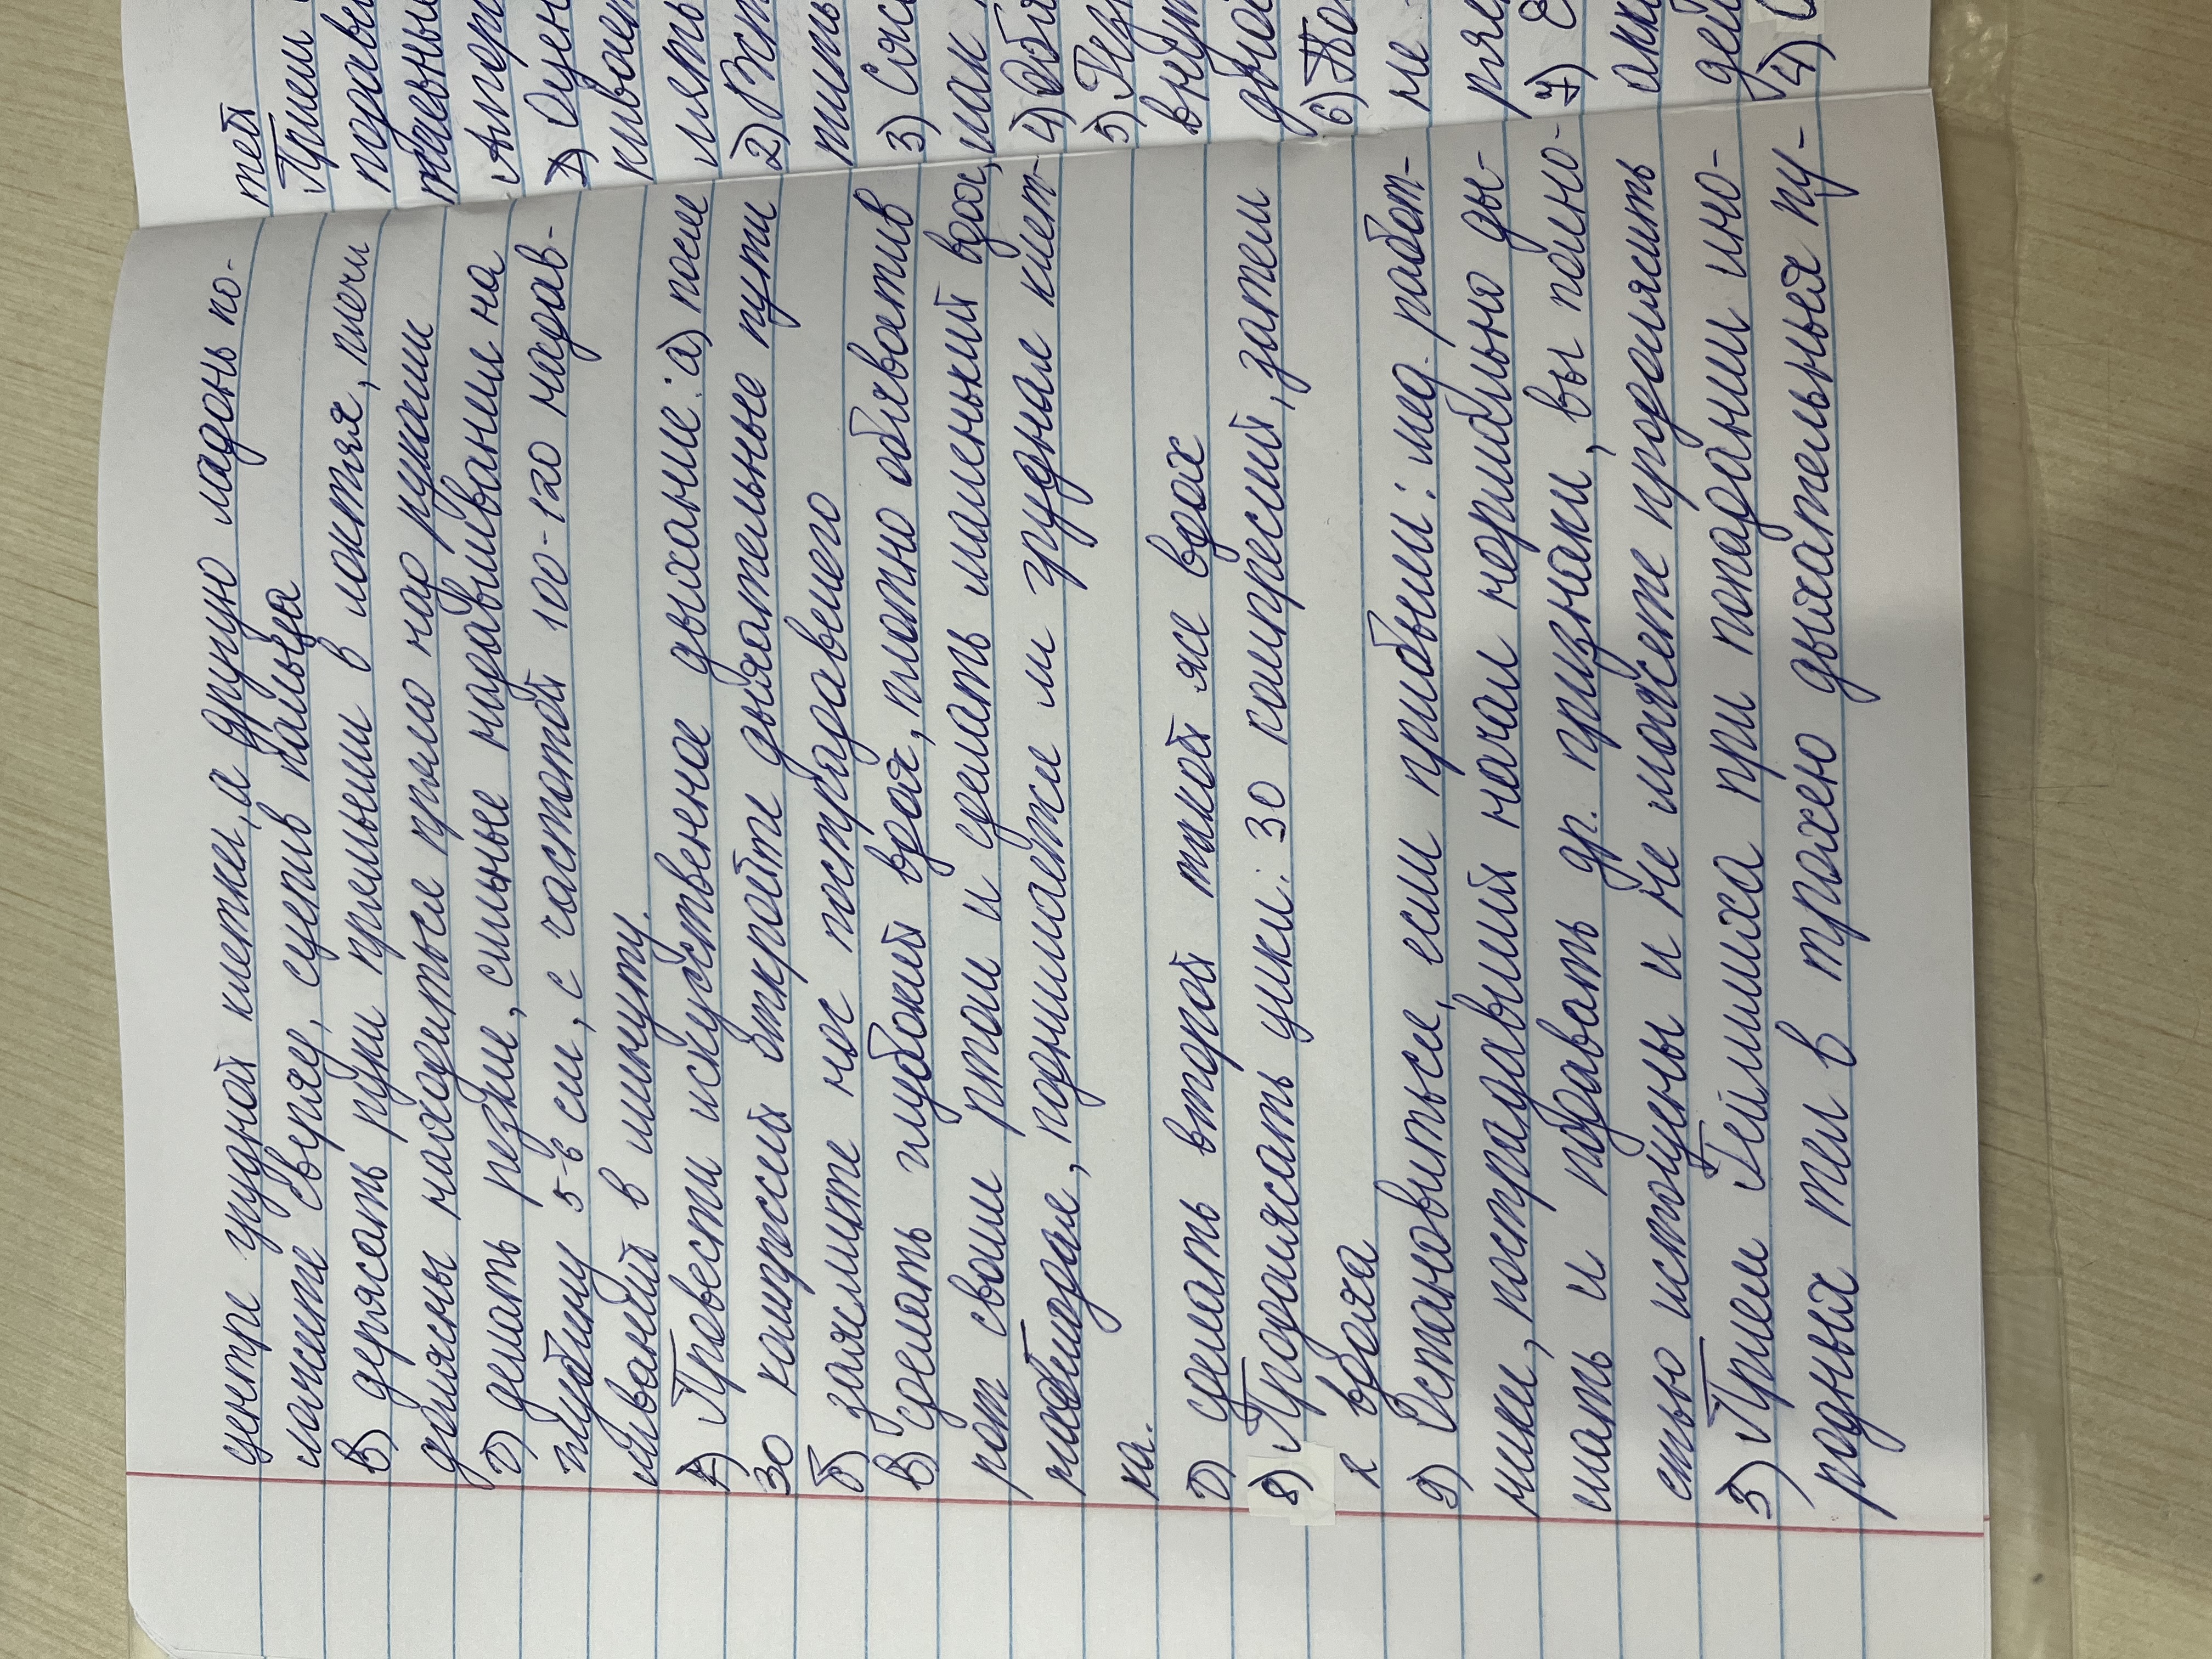 центре грудной клетки, а другую ладонь по-
ложите сверху, сцепив пальцы
в) держать руки прямыми в локтях, плечи
должны находиться прямо над руками
г) делать резкие, сильные надавливания на
глубину 5-6 см, с частотой 100-120 надав-
ливаний в минуту.
Провести искуственное дыхание: а) после
30 компрессий откройте дыхательные пути
б) зажмите нос пострадавшего
в) сделать глубокий вдох, плотно обхватив
рот своим ртом и сделать маленький вдох,
наблюдая, поднимается ли грудная клет-
ка.
г) сделать второй такой же вдох
8) Продолжать цикл: 30 компрессий, затем
2 вдоха
9) Остановиться, если прибыли: мед. работ-
ники, пострадавший начал нормально ды-
шать и подавать др. признаки, вы полно-
стью истощены и не можете продолжить
3) Прием Геймлиха при попадании ино-
родных тел в трахею дыхательных пу-
тей
Прием
подавы
Алгор
1) Оцен
кивает
лять
2) Вст
3) Сжа
как
4)
5)
внут
6) По
не
7)
акк
дей
4)